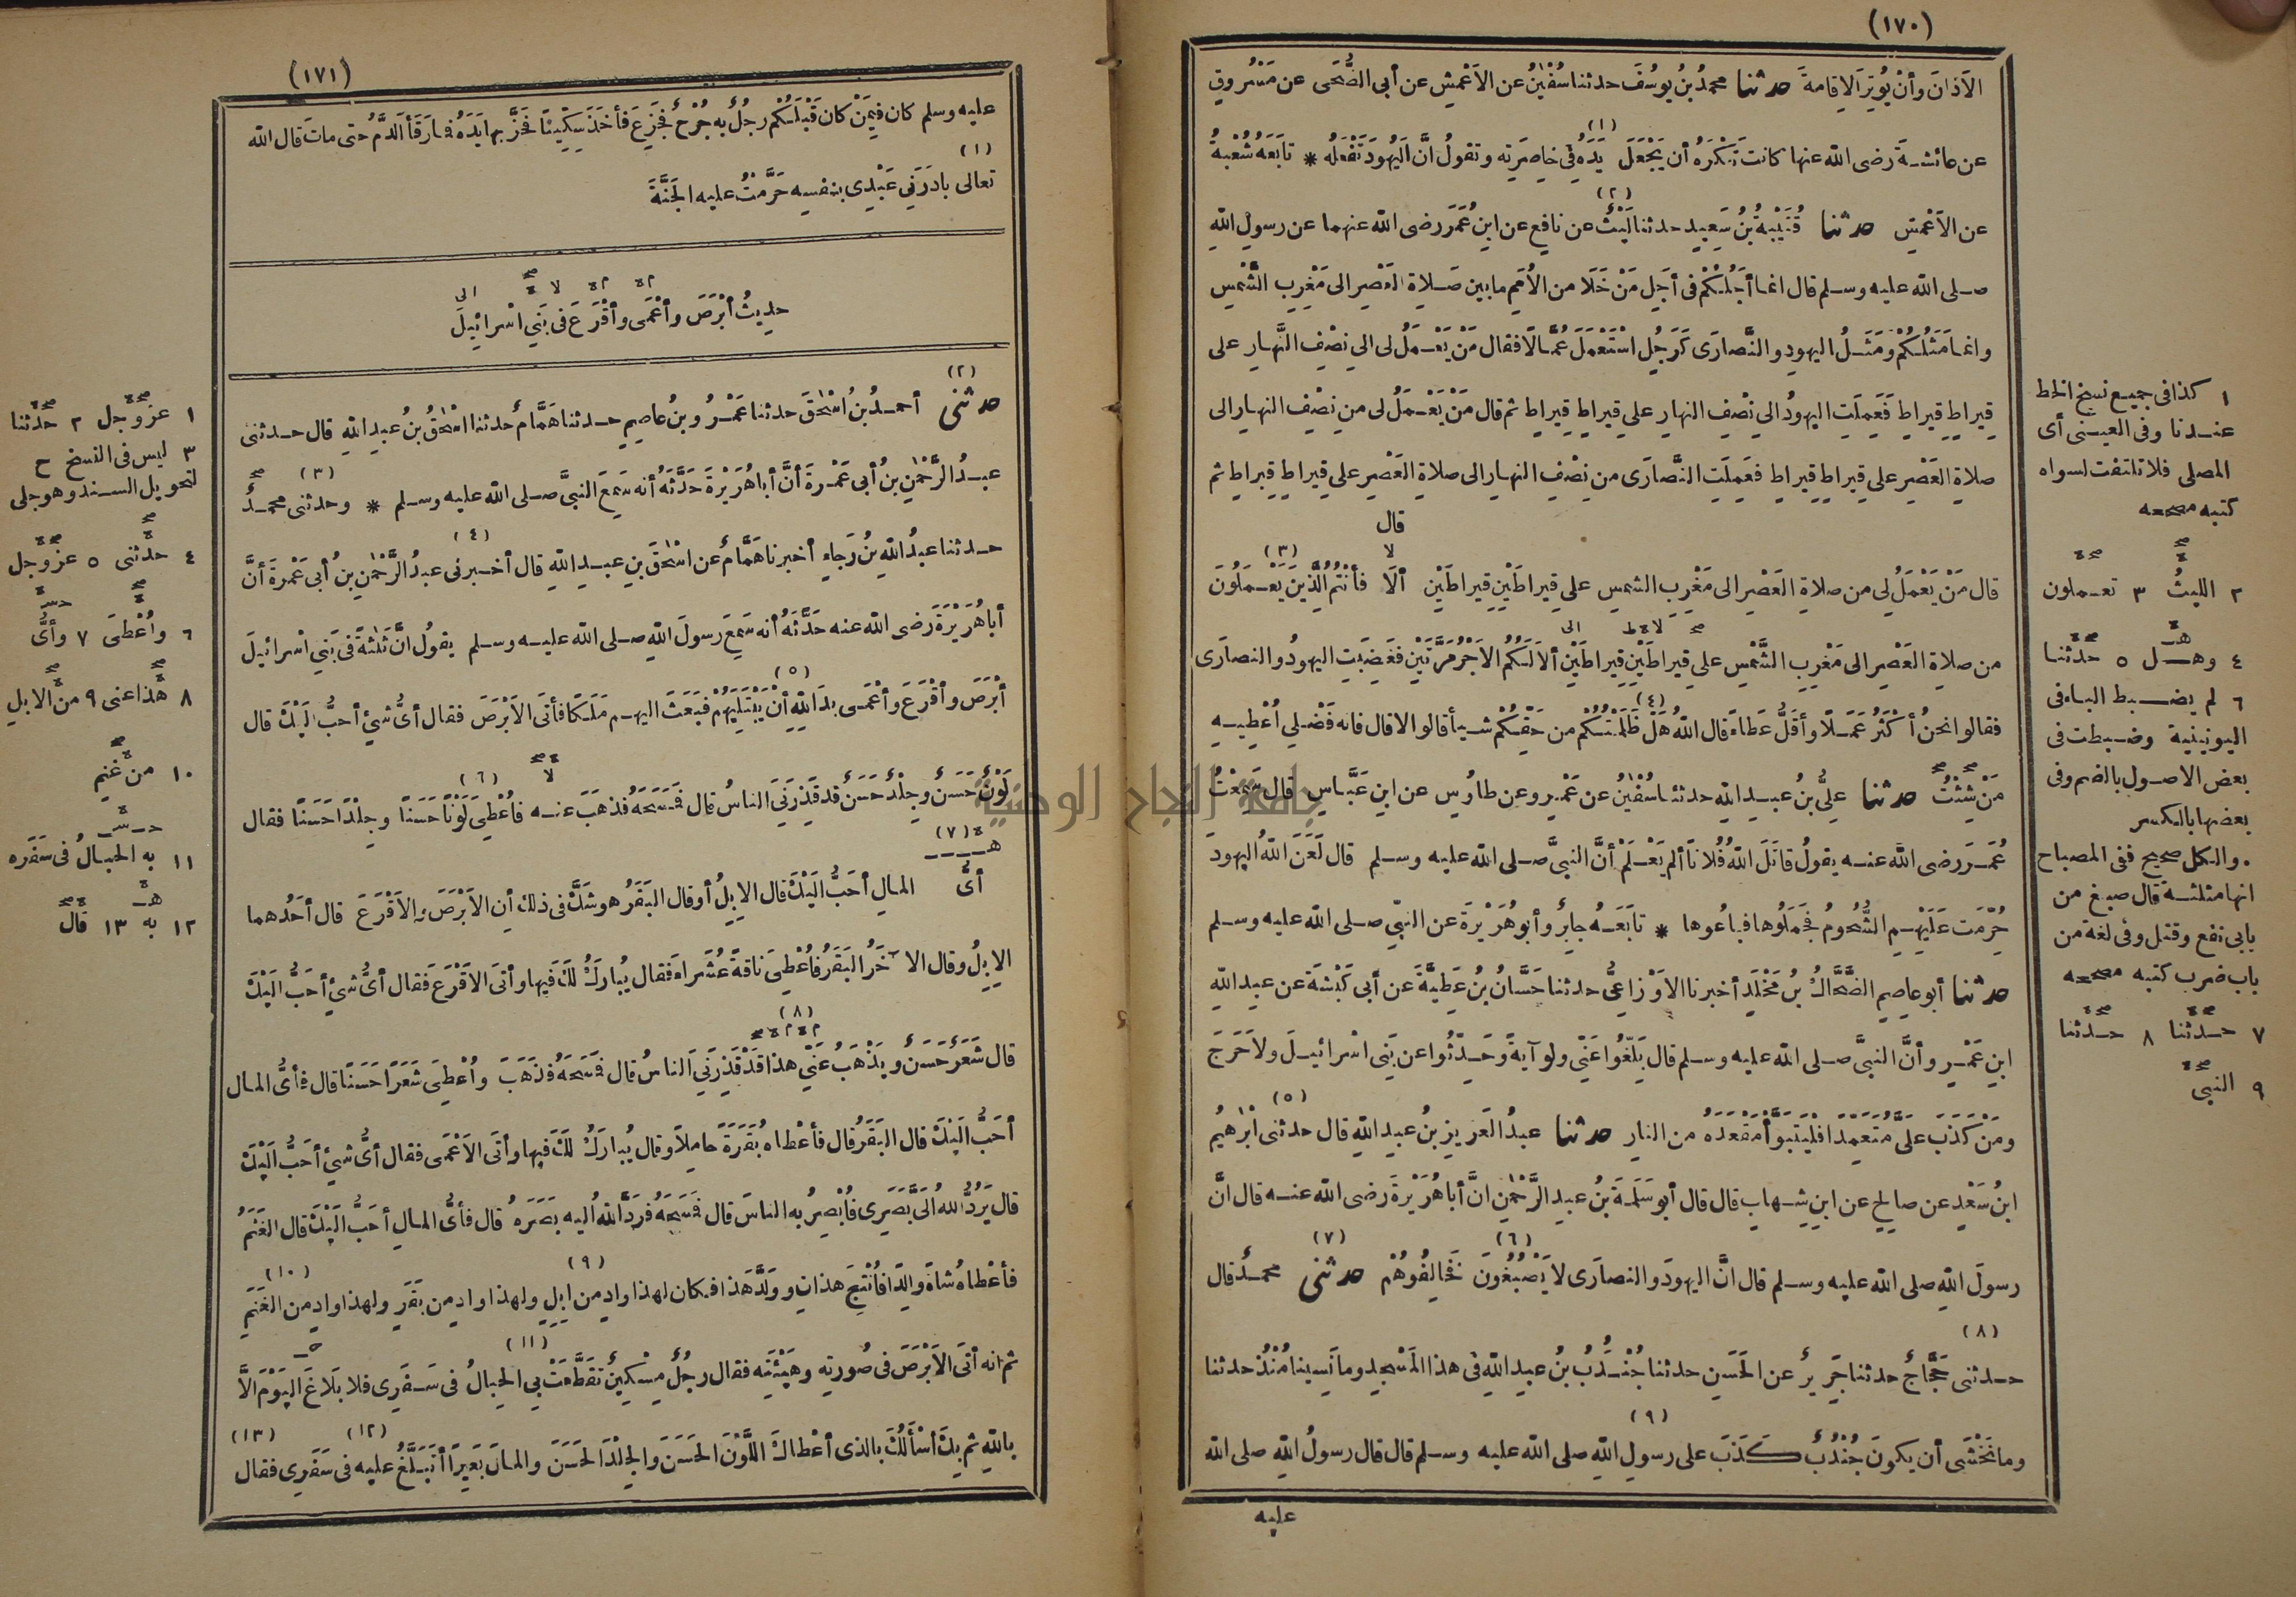 (١٧٠)
الاَذانَ وأنْ يُوتِرَ الاِقامةَ حدثنا محمدُ بنُ يوسُفَ حدثنا سُفْيٰنُ عن الاَعْمَشِ عن أبى الضُّحَى عن مَسْرُوقٍ
(١)
عن عائشةَ رضى الله عنها كانت تَكْرَهُ أن يَجْعَلَ يَدَهُ فى خاصِرَتِه وتقولُ انَّ اليَهُودَ تَفْعَلُه * تابَعَهُ شُعْبةُ
(٢)
عن الاَعْمَشِ حدثنا قُتَيْبةُ بنُ سَعِيدٍ حدثنا لَيْثٌ عن نافِعٍ عن ابنِ عُمَرَ رضى الله عنهما عن رسولِ اللهِ
صلى الله عليه وسلم قال انما أجَلُكُمْ فى أجَلِ مَنْ خَلَا من الاُمَمِ ما بين صَلاةِ العَصْرِ الى مَغْرِبِ الشَّمْسِ
وانما مَثَلُكُمْ ومَثَلُ اليهودِ والنَّصارَى كَرَجُلٍ اسْتَعْمَلَ عُمَّالًا فقال مَنْ يَعْمَلُ لى الى نِصْفِ النَّهارِ على
قِيراطٍ قِيراطٍ فَعَمِلَتِ اليهودُ الى نِصْفِ النهارِ على قِيراطٍ قِيراطٍ ثم قال مَنْ يَعْمَلُ لى من نِصْفِ النهارِ الى
صلاةِ العَصْرِ على قِيراطٍ قِيراطٍ فعَمِلَتِ النَّصارَى من نِصْفِ النهارِ الى صلاةِ العَصْرِ على قِيراطٍ قِيراطٍ ثم
قال
لا (٣)
قال مَنْ يَعْمَلُ لى من صلاةِ العَصْرِ الى مَغْرِبِ الشمسِ على قِيراطَيْنِ قِيراطَيْنِ ألَا فأنْتُمُ الَّذِينَ يَعْمَلُونَ
من صلاةِ العَصْرِ الى مَغْرِبِ الشَّمْسِ على قِيراطَيْنِ قِيراطَيْنِ ألا لَكُمُ الاَجْرُ مَرَّتَيْنِ فغَضِبَتِ اليهودُ والنصارَى
(٤)
فقالوا نحنُ أكْثَرُ عَمَلًا وأقَلُّ عَطاءً قال اللهُ هَلْ ظَلَمْتُكُمْ من حَقِّكُمْ شيأ قالوا لا قال فانه فَضْلِى أُعْطِيهِ
مَنْ شِئْتُ حدثنا علىُّ بنُ عبدِ اللهِ حدثنا سُفْيٰنُ عن عَمْرٍو عن طاوُسٍ عن ابنِ عَبَّاسٍ قال سَمِعْتُ
عُمَرَ رضى الله عنه يقولُ قاتَلَ اللهُ فُلانًا ألم يَعْلَمْ أنَّ النبىَّ صلى الله عليه وسلم قال لَعَنَ اللهُ اليهودَ
حُرِّمَتْ عَلَيْهِمِ الشُّحُومُ فَجَمَلُوها فباعُوها * تابَعَهُ جابِرٌ وأبو هُرَيْرةَ عن النبىِّ صلى الله عليه وسلم
حدثنا أبو عاصِمٍ الضَّحَّاكُ بنُ مَخْلَدٍ أخبرنا الاَوْزاعِىُّ حدثنا حَسَّانُ بنُ عَطِيَّةَ عن أبى كَبْشةَ عن عبدِ اللهِ
ابنِ عَمْرٍو أنَّ النبىَّ صلى الله عليه وسلم قال بَلِّغُوا عَنِّى ولو آيةً وحَدِّثُوا عن بَنِى اسْرائيلَ ولا حَرَجَ
(٥)
ومَنْ كَذَبَ علىَّ مُتَعَمِّدًا فلْيَتَبَوَّأْ مَقْعَدَهُ من النارِ حدثنا عبدُ العَزيزِ بنُ عبدِ اللهِ قال حدثنى ابْرٰهيمُ
ابنُ سَعْدٍ عن صالِحٍ عن ابنِ شِهابٍ قال قال أبو سَلَمةَ بنُ عبدِ الرَّحْمٰنِ انَّ أبا هُرَيْرةَ رضى الله عنه قال انَّ
(٦) (٧)
رسولَ اللهِ صلى الله عليه وسلم قال انَّ اليهودَ والنصارَى لا يَصْبُغُونَ فخالِفُوهُمْ حدثنى محمدٌ قال
(٨)
حدثنى حَجَّاجٌ حدثنا جَرِيرٌ عن الحَسَنِ حدثنا جُنْدُبُ بنُ عبدِ اللهِ فى هذا المَسْجِدِ وما نَسِينا مُنْذُ حدثنا
(٩)
وما نَخْشَى أن يكونَ جُنْدُبٌ كَذَبَ على رسولِ اللهِ صلى الله عليه وسلم قال قال رسولُ اللهِ صلى الله
عليه
١ كذا فى جميع نسخ الخط
عندنا وفى العينى أى
المصلى فلا تلتفت لسواه
كتبه مصححه
٢ الليثُ ٣ تعملون
٤ وهل ٥ حدثنا
٦ لم يضبط الباء فى
اليونينية وضبطت فى
بعض الاصول بالضم وفى
بعضها بالكسر
والكل صحيح ففى المصباح
انها مثلثة قال صبغ من
بابى نفع وقتل وفى لغة من
باب ضرب كتبه مصححه
٧ حدثنا ٨ حدثنا
٩ النبى
(١٧١)
عليه وسلم كان فيمَنْ كان قَبْلَكُمْ رجلٌ به جُرْحٌ فجَزِعَ فأخَذَ سِكِّينًا فحَزَّ بها يَدَهُ فما رَقَأَ الدَّمُ حتى ماتَ قال الله
(١)
تعالى بادَرَنِى عَبْدِى بنفسِه حَرَّمْتُ عليه الجَنَّةَ
لا الى
حديثُ أبْرَصَ وأعْمَى وأقْرَعَ فى بَنِى اسْرائيلَ
(٢)
حدثنى أحمدُ بنُ اسْحٰقَ حدثنا عَمْرُو بنُ عاصِمٍ حدثنا هَمَّامٌ حدثنا اسْحٰقُ بنُ عبدِ اللهِ قال حدثنى
(٣)
عبدُ الرَّحْمٰنِ بنُ أبى عَمْرةَ أنَّ أبا هُرَيْرةَ حَدَّثَهُ أنه سَمِعَ النبىَّ صلى الله عليه وسلم * وحدثنى محمدٌ
(٤)
حدثنا عبدُ اللهِ بنُ رَجاءٍ أخبرنا هَمَّامٌ عن اسْحٰقَ بنِ عبدِ اللهِ قال أخبرنى عبدُ الرَّحْمٰنِ بنُ أبى عَمْرةَ أنَّ
أبا هُرَيْرةَ رضى الله عنه حَدَّثَهُ أنه سَمِعَ رسولَ اللهِ صلى الله عليه وسلم يقولُ انَّ ثَلٰثةً فى بَنِى اسْرائيلَ
(٥)
أبْرَصَ وأقْرَعَ وأعْمَى بدَا للهِ أنْ يَبْتَلِيَهُمْ فبَعَثَ اليهم مَلَكًا فأتَى الاَبْرَصَ فقال أىُّ شئٍ أحبُّ الَيْكَ قال
لا (٦)
لَوْنٌ حَسَنٌ وجِلْدٌ حَسَنٌ قد قَذِرَنِى الناسُ قال فمَسَحَهُ فذهَبَ عنه فاُعْطِىَ لَوْنًا حَسَنًا وجِلْدًا حَسَنًا فقال
(٧)
أىُّ المالِ أحَبُّ الَيْكَ قال الاِبِلُ أو قال البَقَرُ هو شَكَّ فى ذلك أن الاَبْرَصَ والاَقْرَعَ قال أحَدُهما
الاِبِلُ وقال الآخَرُ البَقَرُ فاُعْطِىَ ناقةً عُشَراءَ فقال يُبارَكُ لَكَ فيها وأتَى الاَقْرَعَ فقال أىُّ شئٍ أحَبُّ الَيْكَ
(٨)
قال شَعَرٌ حَسَنٌ ويَذْهَبُ عَنِّى هذا قَدْ قَذِرَنِى الناسُ قال فمَسَحَهُ فذَهَبَ وأُعْطِىَ شَعَرًا حَسَنًا قال فأىُّ المالِ
أحَبُّ الَيْكَ قال البَقَرُ قال فأعْطاهُ بَقَرَةً حامِلًا وقال يُبارَكُ لَكَ فيها وأتَى الاَعْمَى فقال أىُّ شئٍ أحَبُّ الَيْكَ
قال يَرُدُّ اللهُ الَىَّ بَصَرِى فاُبْصِرُ به الناسَ قال فمَسَحَهُ فرَدَّ اللهُ اليه بصَرَهُ قال فأىُّ المالِ أحَبُّ الَيْكَ قال الغَنَمُ
(٩) (١٠)
فأعْطاهُ شاةً والِدًا فاُنْتِجَ هذانِ ووَلَّدَ هَذا فكان لهذا وادٍ من ابِلٍ ولهذا وادٍ من بَقَرٍ ولهذا وادٍ من الغَنَمِ
(١١)
ثم انه أتَى الاَبْرَصَ فى صُورتِه وهَيْئَتِه فقال رجُلٌ مِسْكِينٌ تقَطَّعَتْ بى الحِبالُ فى سَفَرِى فلا بَلاغَ اليَوْمَ الاَّ
(١٢) (١٣)
باللهِ ثم بِكَ أسْأَلُكَ بالذى أعْطاكَ اللَّوْنَ الحَسَنَ والجِلْدَ الحَسَنَ والمالَ بَعِيرًا أتَبَلَّغُ عليه فى سَفَرِى فقال
١ عزوجل ٢ حدثنا
٣ ليس فى النسخ ح
لتحويل السند وهو جلى
٤ حدثنى ٥ عزوجل
٦ وأُعْطىَ ٧ وأىُّ
٨ هذا عنى ٩ من الابلِ
١٠ من غَنِمٍ
١١ به الحبالُ فى سَفَره
١٢ به ١٣ قال
جامعة النجاح الوطنية